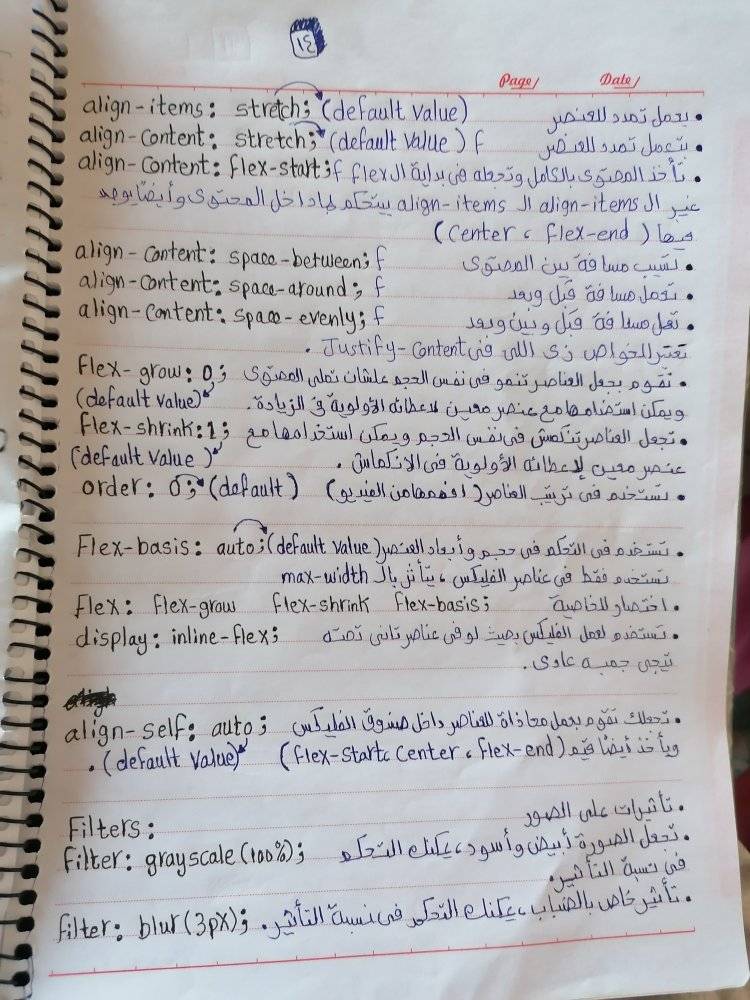 ١٤
Page/ Date/
align-items: stretch; (default value) • يعمل تمدد للعنصر
align-content: stretch; (default value) f • بتعمل تمدد للعنصر
align-content: flex-start; f • تأخذ المحتوى بالكامل وتجعله فى بداية ال flex
غير ال align-items ال align-items بيتحكم لما داخل المحتوى وأيضا يوجد
فيها (center ، flex-end)
align-content: space-between; f • تسيب مسافة بين المحتوى
align-content: space-around; f • تعمل مسافة قبل وبعد
align-content: space-evenly; f • تعمل مسافة قبل وبين وبعد
تعتبر الخواص زى اللى فى Justify-content .
flex-grow: 0; • تقوم بجعل العناصر تنمو فى نفس الحجم علشان تملى المحتوى
(default value) ويمكن استخدامها مع عنصر معين لاعطائه الأولوية فى الزيادة.
flex-shrink: 1; • تجعل العناصر تنكمش فى نفس الحجم ويمكن استخدامها مع
(default value) عنصر معين لإعطائه الأولوية فى الانكماش .
order: 0; (default) • تستخدم فى ترتيب العناصر (افهمها من الفيديو)
Flex-basis: auto; (default value) • تستخدم فى التحكم فى حجم وأبعاد العنصر
تستخدم فقط فى عناصر الفليكس ، يتأثر بالـ max-width
Flex: flex-grow flex-shrink flex-basis; • اختصار للخاصية
display: inline-flex; • تستخدم لعمل الفليكس بحيث لو فى عناصر تانى تحته
تيجى جمبه عادى .
align-self: auto; • تجعلك تقوم بعمل محاذاة للعناصر داخل صندوق الفليكس
(default value) . ويأخذ أيضا قيم (flex-start، center ، flex-end)
Filters: • تأثيرات على الصور
filter: grayscale(100%); • تجعل الصورة أبيض وأسود ، يمكنك التحكم
فى نسبة التأثير.
filter: blur(3px); • تأثير خاص بالضباب ، يمكنك التحكم فى نسبة التأثير .